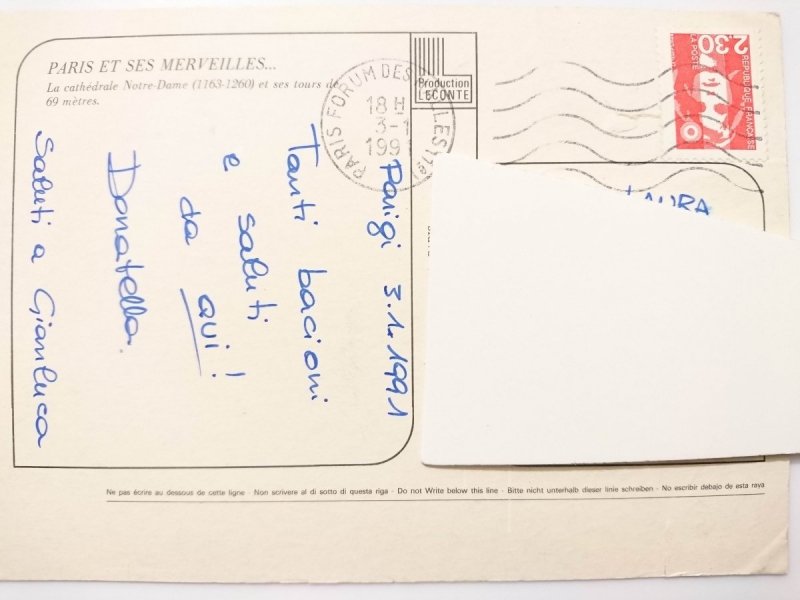 PARIS ET SES MERVEILLES...
La cathédrale Notre-Dame (1163-1260) et ses tours de
69 mètres.
Production
LECONTE
PARIS FORUM DES
LLES (1er)
18 H
3-1
199
2,30
LA POSTE
REPUBLIQUE FRANÇAISE
Parigi 3.1.1991
Tanti bacioni
e saluti
da QUI!
Donatella.
Saluti a Gianluca
LAURA
Ne pas écrire au dessous de cette ligne - Non scrivere al di sotto di questa riga - Do not Write below this line - Bitte nicht unterhalb dieser linie schreiben - No escribir debajo de esta raya